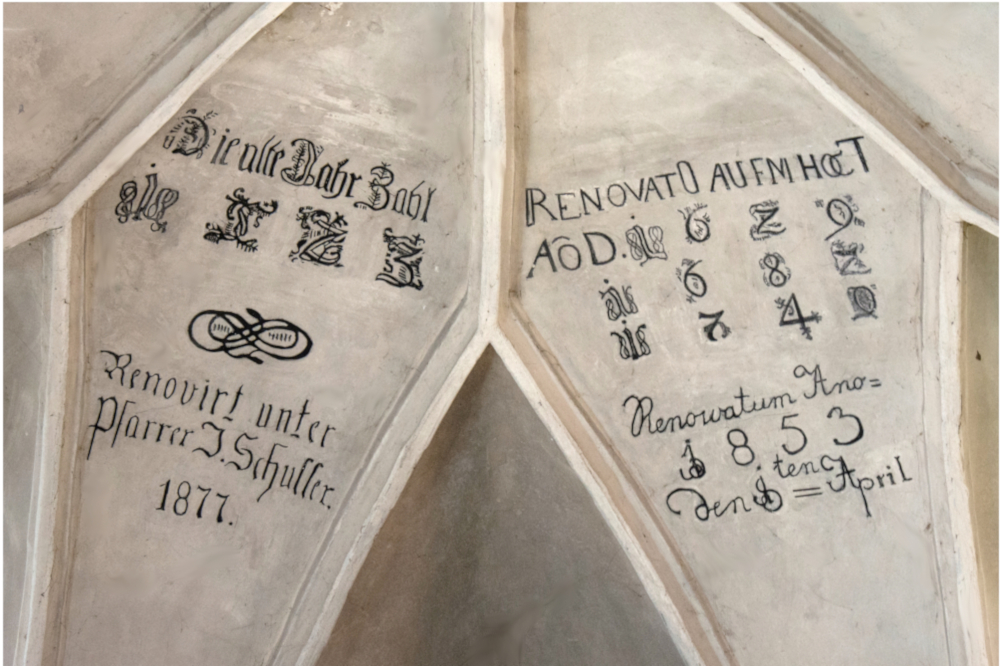 Die alte Jahr Zahl
Renovirt unter
Pfarrer J. Schuller.
1877.
RENOVATO AUFM HOCT
AÔ D. 1 6 2 9
1 6 8 2
1 7 4 0
Renowatum Ano=
1 8 5 3
den 1 ten = April